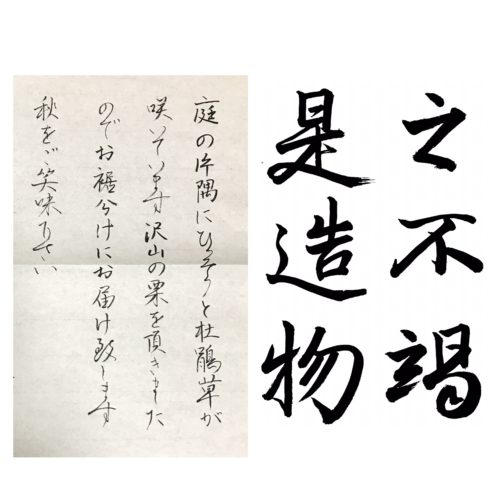 之不竭
是造物
庭の片隅にひっそりと杜鵑草が
咲いています沢山の栗を頂きました
のでお裾分けにお届け致します
秋をご笑味下さい